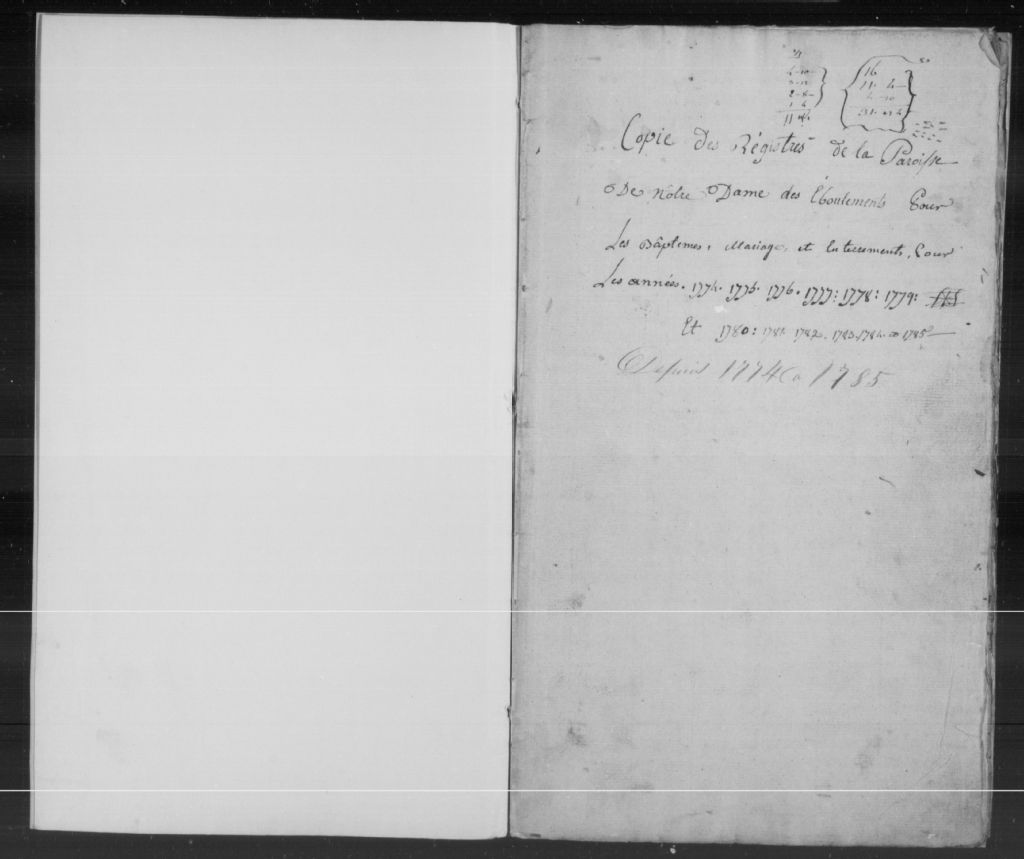 16
11 4
4 10
Copie des Régistres de la Paroisse
De Nôtre Dame des Eboulements Pour
Les Bâptemes, Mariage, et Enterrements, Pour
Les années. 1774. 1775. 1776. 1777: 1778: 1779:
Et 1780: 1781. 1782. 1783. 1784. 1785
Depuis 1774 a 1785